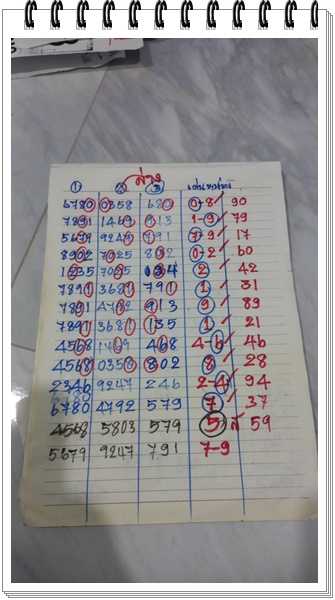 ล่าง
① ② ③
6780 0358 680 0-8 90
7891 1469 913 1-9 79
5679 9247 791 7-9 17
8902 7025 802 0-2 60
1235 7025 2 42
7891 3681 791 1 31
7891 4792 913 9 89
7891 3681 135 1 21
4568 1469 468 4-6 46
4568 0358 802 8 28
2346 9247 246 2-4 94
6780 4792 579 7 37
4568 5803 579 5 ส 59
5679 9247 791 7-9